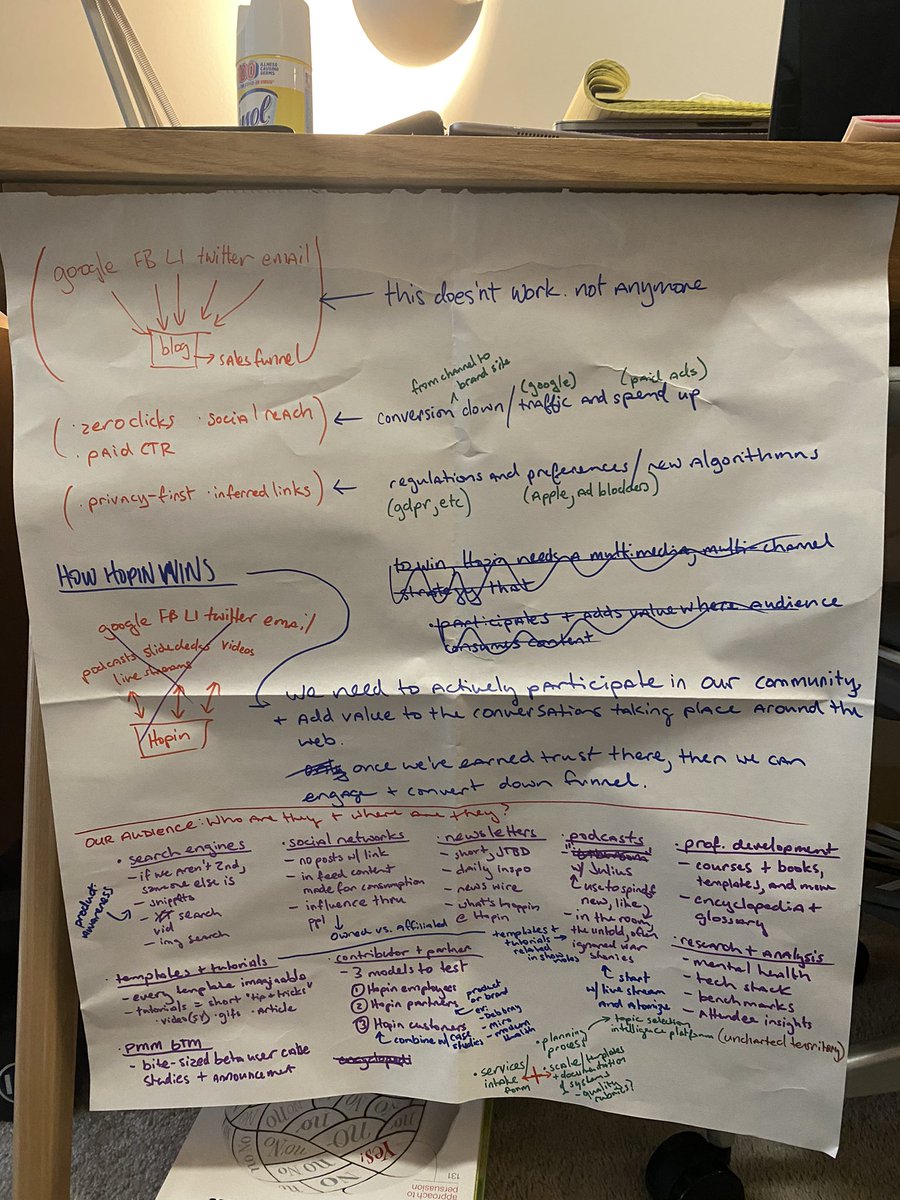 google FB LI twitter email
blog → sales funnel
← this does'nt work. not anymore
from channel to
brand site
(google)
(paid ads)
· zero clicks · social reach
· paid CTR
← conversion down / traffic and spend up
· privacy-first · inferred links
← regulations and preferences / new Algorithmns
(gdpr, etc)
(Apple, Ad blockers)
HOW HOPIN WINS
to win, Hopin needs a multimedia, multi-channel
strategy that
· participates + adds value where audience
consumes content
google FB LI twitter email
podcasts slidedecks videos
live streams
Hopin
we need to actively participate in our community,
+ add value to the conversations taking place around the
web.
once we've earned trust there, then we can
engage + convert down funnel.
OUR AUDIENCE: Who are they + where are they?
· search engines
- if we aren't 2nd,
someone else is
- snippets
search
vid
- img search
product
awareness
social networks
- no posts w/ link
- in feed content
made for consumption
- influence thru
ppl
owned vs. affiliated
· newsletters
- short, JTBD
- daily inspo
- news wire
- what's happin
@ Hopin
· podcasts
w/ Julius
use to spinoff
new, like
- in the room
the untold, often
ignored war
stories
start
w/ live stream
and atomize
templates +
tutorials →
related
in show
notes
· prof. development
- courses + books,
templates, and more
- encyclopedia +
glossary
· research + analysis
- mental health
- tech stack
- benchmarks
- Attendee insights
· templates + tutorials
- every template imaginable
- tutorials = short "tip & tricks"
· video (sv) · gifs · article
· contributor + partner
- 3 models to test
① Hopin employees
② Hopin partners
③ Hopin customers
combine w/ case
studies
product
or brand
ex:
- miro
- medium
health
· pmm btm
- bite-sized beta user case
studies + announcement
· services/
intake
form
· planning
process
→ topic selection
intelligence platform (uncharted territory)
· scale/templates
+ documentation
& systems
- quality
rubrics?
ILLNESS
CAUSING
GERMS
Yes!
no
131
approach to
persuasion